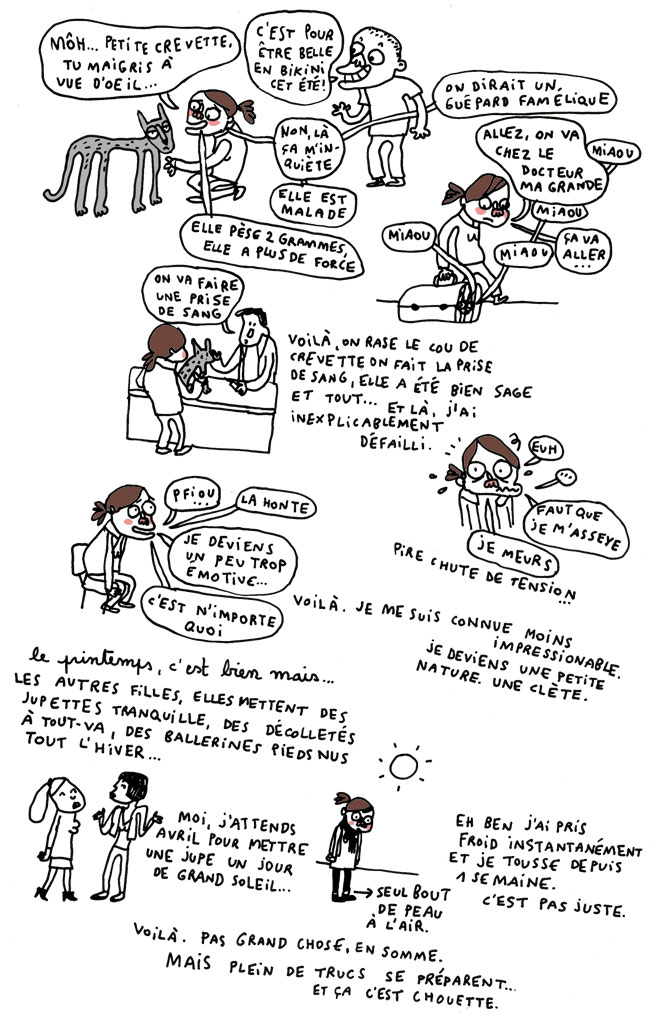 MÔH... PETITE CREVETTE,
TU MAIGRIS À
VUE D'OEIL...
C'EST POUR
ÊTRE BELLE
EN BIKINI
CET ÉTÉ!
ON DIRAIT UN
GUÉPARD FAMELIQUE
NON, LÀ
ÇA M'IN-
QUIÈTE
ELLE EST
MALADE
ELLE PÈSE 2 GRAMMES,
ELLE A PLUS DE FORCE
ALLEZ, ON VA
CHEZ LE
DOCTEUR
MA GRANDE
MIAOU
MIAOU
MIAOU
MIAOU
ÇA VA
ALLER
...
ON VA FAIRE
UNE PRISE
DE SANG
VOILÀ, ON RASE LE COU DE
CREVETTE ON FAIT LA PRISE
DE SANG, ELLE A ÉTÉ BIEN SAGE
ET TOUT... ET LÀ, J'AI
INEXPLICABLEMENT
DÉFAILLI.
EUH
...
FAUT QUE
JE M'ASSEYE
JE MEURS
PIRE CHUTE DE TENSION
...
PFIOU
...
LA HONTE
JE DEVIENS
UN PEU TROP
EMOTIVE...
C'EST N'IMPORTE
QUOI
VOILÀ. JE ME SUIS CONNUE MOINS
IMPRESSIONABLE.
JE DEVIENS UNE PETITE
NATURE. UNE CLÈTE.
le printemps, c'est bien mais...
LES AUTRES FILLES, ELLES METTENT DES
JUPETTES TRANQUILLE, DES DÉCOLLETÉS
À TOUT-VA, DES BALLERINES PIEDS NUS
TOUT L'HIVER...
MOI, J'ATTENDS
AVRIL POUR METTRE
UNE JUPE UN JOUR
DE GRAND SOLEIL...
SEUL BOUT
DE PEAU
À L'AIR.
EH BEN J'AI PRIS
FROID INSTANTANÉMENT
ET JE TOUSSE DEPUIS
1 SEMAINE.
C'EST PAS JUSTE.
VOILÀ. PAS GRAND CHOSE, EN SOMME.
MAIS PLEIN DE TRUCS SE PRÉPARENT...
ET ÇA C'EST CHOUETTE.